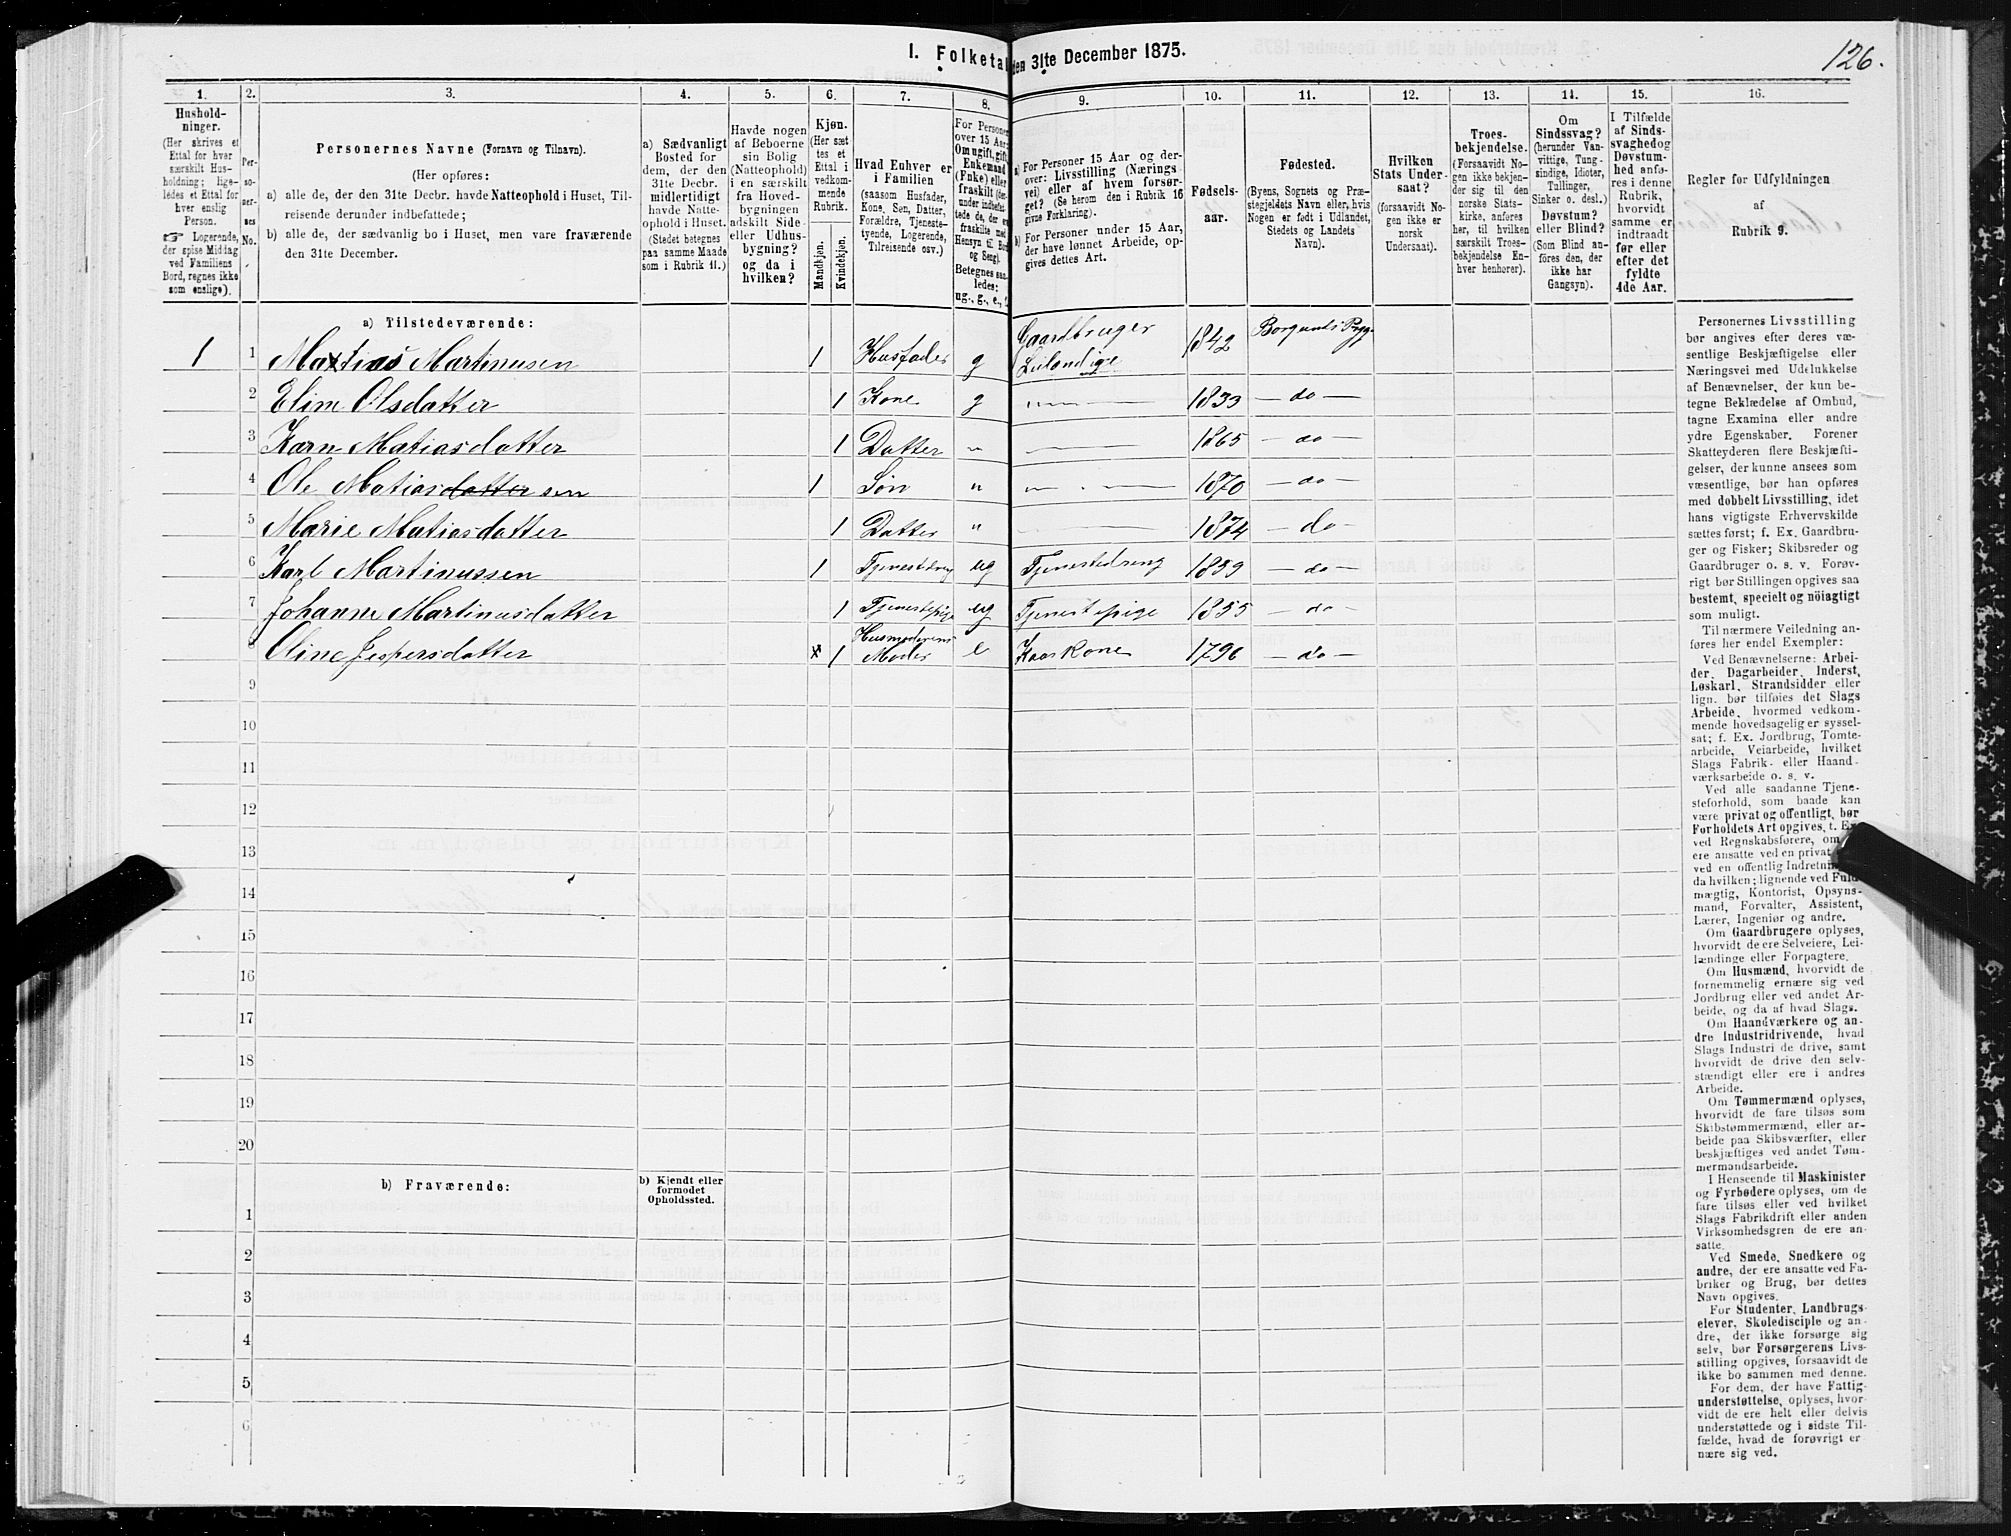 I. Folketal den 31te December 1875.
126.
1.
2.
3.
4.
5.
6.
7.
8.
9.
10.
11.
12.
13.
14.
15.
16.
Hushold-
ninger.
(Her skrives et
Ettal for hver
særskilt Hus-
holdning; lige-
ledes et Ettal for
hver enslig
Person.
☞ Logerende,
der spise Middag
ved Familiens
Bord, regnes ikke
som enslige).
Per-
so-
ner-
nes
No.
Personernes Navne (Fornavn og Tilnavn).
(Her opføres:
a) alle de, der den 31te Decbr. havde Natteophold i Huset, Til-
reisende derunder indbefattede;
b) alle de, der sædvanlig bo i Huset, men vare fraværende
den 31te December.
a) Sædvanligt
Bosted for
dem, der den
31te Decbr.
midlertidigt
havde Natte-
ophold i Huset.
(Stedet betegnes
paa samme Maade
som i Rubrik 11.)
Havde nogen
af Beboerne
sin Bolig
(Natteophold)
i en særskilt
fra Hoved-
bygningen
adskilt Side-
eller Udhus-
bygning?
og da i
hvilken?
Kjøn.
(Her sæt
tes et
Ettal i
vedkom-
mende
Rubrik.
Mandkjøn.
Kvindekjøn.
Hvad Enhver er
i Familien
(saasom Husfader,
Kone, Søn, Datter,
Forældre, Tjeneste-
tyende, Logerende,
Tilreisende osv.)
For Personer
over 15 Aar:
Om ugift, gift,
Enkemand
(Enke) eller
fraskilt (der-
under indbefat-
tede de, der ere
fraskilte med
Hensyn til Bord
og Seng).
Betegnes saa-
ledes:
ug., g., e.,
a) For Personer 15 Aar og der-
over: Livsstilling (Nærings-
vei) eller af hvem forsør-
get? (Se herom den i Rubrik 16
givne Forklaring).
b) For Personer under 15 Aar,
der have lønnet Arbeide, op-
gives dettes Art.
Fødsels-
aar.
Fødested.
(Byens, Sognets og Præ-
stegjeldets Navn eller, hvis
Nogen er født i Udlandet,
Stedets og Landets
Navn).
Hvilken
Stats Under-
saat?
(forsaavidt No-
gen ikke er
norsk
Undersaat).
Troes-
bekjendelse.
(Forsaavidt No-
gen ikke bekjen-
der sig til den
norske Stats-
kirke, anføres
her, til hvilken
særskilt Troes-
bekjendelse En-
hver henhører).
Om
Sindssvag?
(herunder Van-
vittige, Tung-
sindige, Idioter,
Tullinger,
Sinker o. desl.)
Døvstum?
eller Blind?
(Som Blind an-
føres den, der
ikke har
Gangsyn).
I Tilfælde
af Sinds-
svaghed og
Døvstum-
hed anfø-
res i denne
Rubrik,
hvorvidt
samme er
indtraadt
før eller
efter det
fyldte
4de Aar.
Regler for Udfyldningen
af
Rubrik 9.
a) Tilstedeværende:
1 1 Matias Martinusen 1 Husfader g Gaardbruger Leilændige 1842 Borgunds Prgj.
2 Eline Olsdatter 1 Kone g 1833 — do —
3 Karn Matiasdatter 1 Datter " 1865 — do —
4 Ole Matiasdatter sen 1 Søn " 1870 — do —
5 Marie Matiasdatter 1 Datter " 1874 — do —
6 Karl Martinussen 1 Tjenestedreng ug Tjenestedreng 1859 — do —
7 Johanne Martinusdatter 1 Tjenestepige ug Tjenestepige 1855 — do —
8 Oline Jespersdatter 1 Husmoderens Moder e Kaarkone 1796 — do —
9
10
11
12
13
14
15
16
17
18
19
20
b) Fraværende:
b) Kjendt eller
formodet
Opholdssted.
1
2
3
4
5
6
Personernes Livsstilling
bør angives efter deres væ-
sentlige Beskjæftigelse eller
Næringsvei med Udelukkelse
af Benævnelser, der kun be-
tegne Beklædelse af Ombud,
tagne Examina eller andre
ydre Egenskaber. Forener
Skatteyderen flere Beskjæfti-
gelser, der kunne ansees som
væsentlige, bør han opføres
med dobbelt Livsstilling, idet
hans vigtigste Erhvervskilde
sættes først; f. Ex. Gaardbru-
ger og Fisker; Skibsreder og
Gaardbruger o. s. v. Forøv-
rigt bør Stillingen opgives saa
bestemt, specielt og nøiagtigt
som muligt.
Til nærmere Veiledning an-
føres her endel Exempler:
Ved Benævnelserne: Arbei-
der, Dagarbeider, Inderst,
Løskarl, Strandsidder eller
lign. bør tilføies det Slags
Arbeide, hvormed vedkom-
mende hovedsagelig er syssel-
sat; f. Ex. Jordbrug, Tomte-
arbeide, Veiarbeide, hvilket
Slags Fabrik- eller Haand-
værksarbeide o. s. v.
Ved alle saadanne Tjene-
steforhold, som baade kan
være privat og offentligt, bør
Forholdets Art opgives, t. Ex.
ved Regnskabsførere, om
ere ansatte ved en privat
ved en offentlig Indretning
da hvilken; lignende ved Fuld-
mægtig, Kontorist, Opsyns-
mand, Forvalter, Assistent,
Lærer, Ingeniør og andre.
Om Gaardbrugere oplyses,
hvorvidt de ere Selveiere, Lei-
lændinge eller Forpagtere.
Om Husmænd, hvorvidt de
fornemmelig ernære sig ved
Jordbrug eller ved andet Ar-
beide, og da af hvad Slags.
Om Haandværkere og an-
dre Industridrivende, hvad
Slags Industri de drive, samt
hvorvidt de drive den selv-
stændigt eller ere i andres
Arbeide.
Om Tømmermænd oplyses,
hvorvidt de fare tilsøs som
Skibstømmermænd, eller ar-
beide paa Skibsværfter, eller
beskjæftiges ved andet Tøm-
mermandsarbeide.
I Henseende til Maskinister
og Fyrbødere oplyses, om de
fare tilsøs eller ved hvilket
Slags Fabrikdrift eller anden
Virksomhedsgren de ere an-
satte.
Ved Smede, Snedkere og
andre, der ere ansatte ved Fa-
briker og Brug, bør dettes
Navn opgives.
For Studenter, Landbrugs-
elever, Skoledisciple og an-
dre, der ikke forsørge sig
selv, bør Forsørgerens Livs-
stilling opgives, forsaavidt de
ikke bo sammen med denne.
For dem, der have Fattig-
understøttelse, oplyses, hvor-
vidt de ere helt eller delvis
understøttede og i sidste Til-
fælde, hvad de forøvrigt er-
nære sig ved.